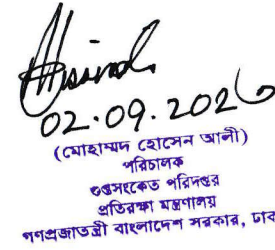 02.09.202৬
(মোহাম্মদ হোসেন আলী)
পরিচালক
গুপ্তসংকেত পরিদপ্তর
প্রতিরক্ষা মন্ত্রণালয়
গণপ্রজাতন্ত্রী বাংলাদেশ সরকার, ঢাকা